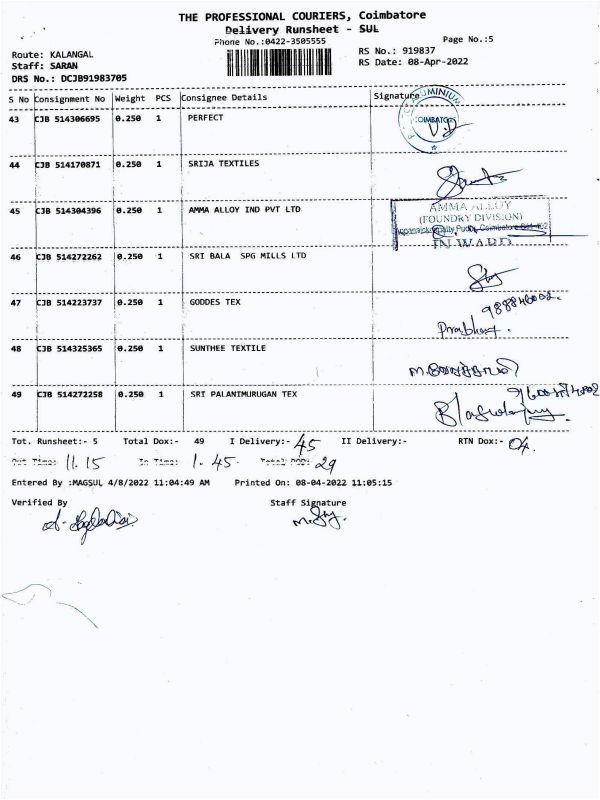 THE PROFESSIONAL COURIERS, Coimbatore
Delivery Runsheet - SUL
Phone No.:0422-3505555
Page No.:5
Route: KALANGAL
RS No.: 919837
Staff: SARAN
RS Date: 08-Apr-2022
DRS No.: DCJB91983705
S No Consignment No Weight PCS Consignee Details Signature
43 CJB 514306695 0.250 1 PERFECT
ALUMINIUM
COIMBATORE
44 CJB 514170871 0.250 1 SRIJA TEXTILES
45 CJB 514304396 0.250 1 AMMA ALLOY IND PVT LTD
AMMA ALLOY
(FOUNDRY DIVISION)
Coimbatore 641 402
INWARD
46 CJB 514272262 0.250 1 SRI BALA SPG MILLS LTD
47 CJB 514223737 0.250 1 GODDES TEX
Prabhat.
48 CJB 514325365 0.250 1 SUNTHEE TEXTILE
49 CJB 514272258 0.250 1 SRI PALANIMURUGAN TEX
Tot. Runsheet:- 5 Total Dox:- 49 I Delivery:- 45 II Delivery:- RTN Dox:- 04.
Out Time: 11.15 In Time: 1.45. Total POD: 29
Entered By :MAGSUL 4/8/2022 11:04:49 AM Printed On: 08-04-2022 11:05:15
Verified By Staff Signature